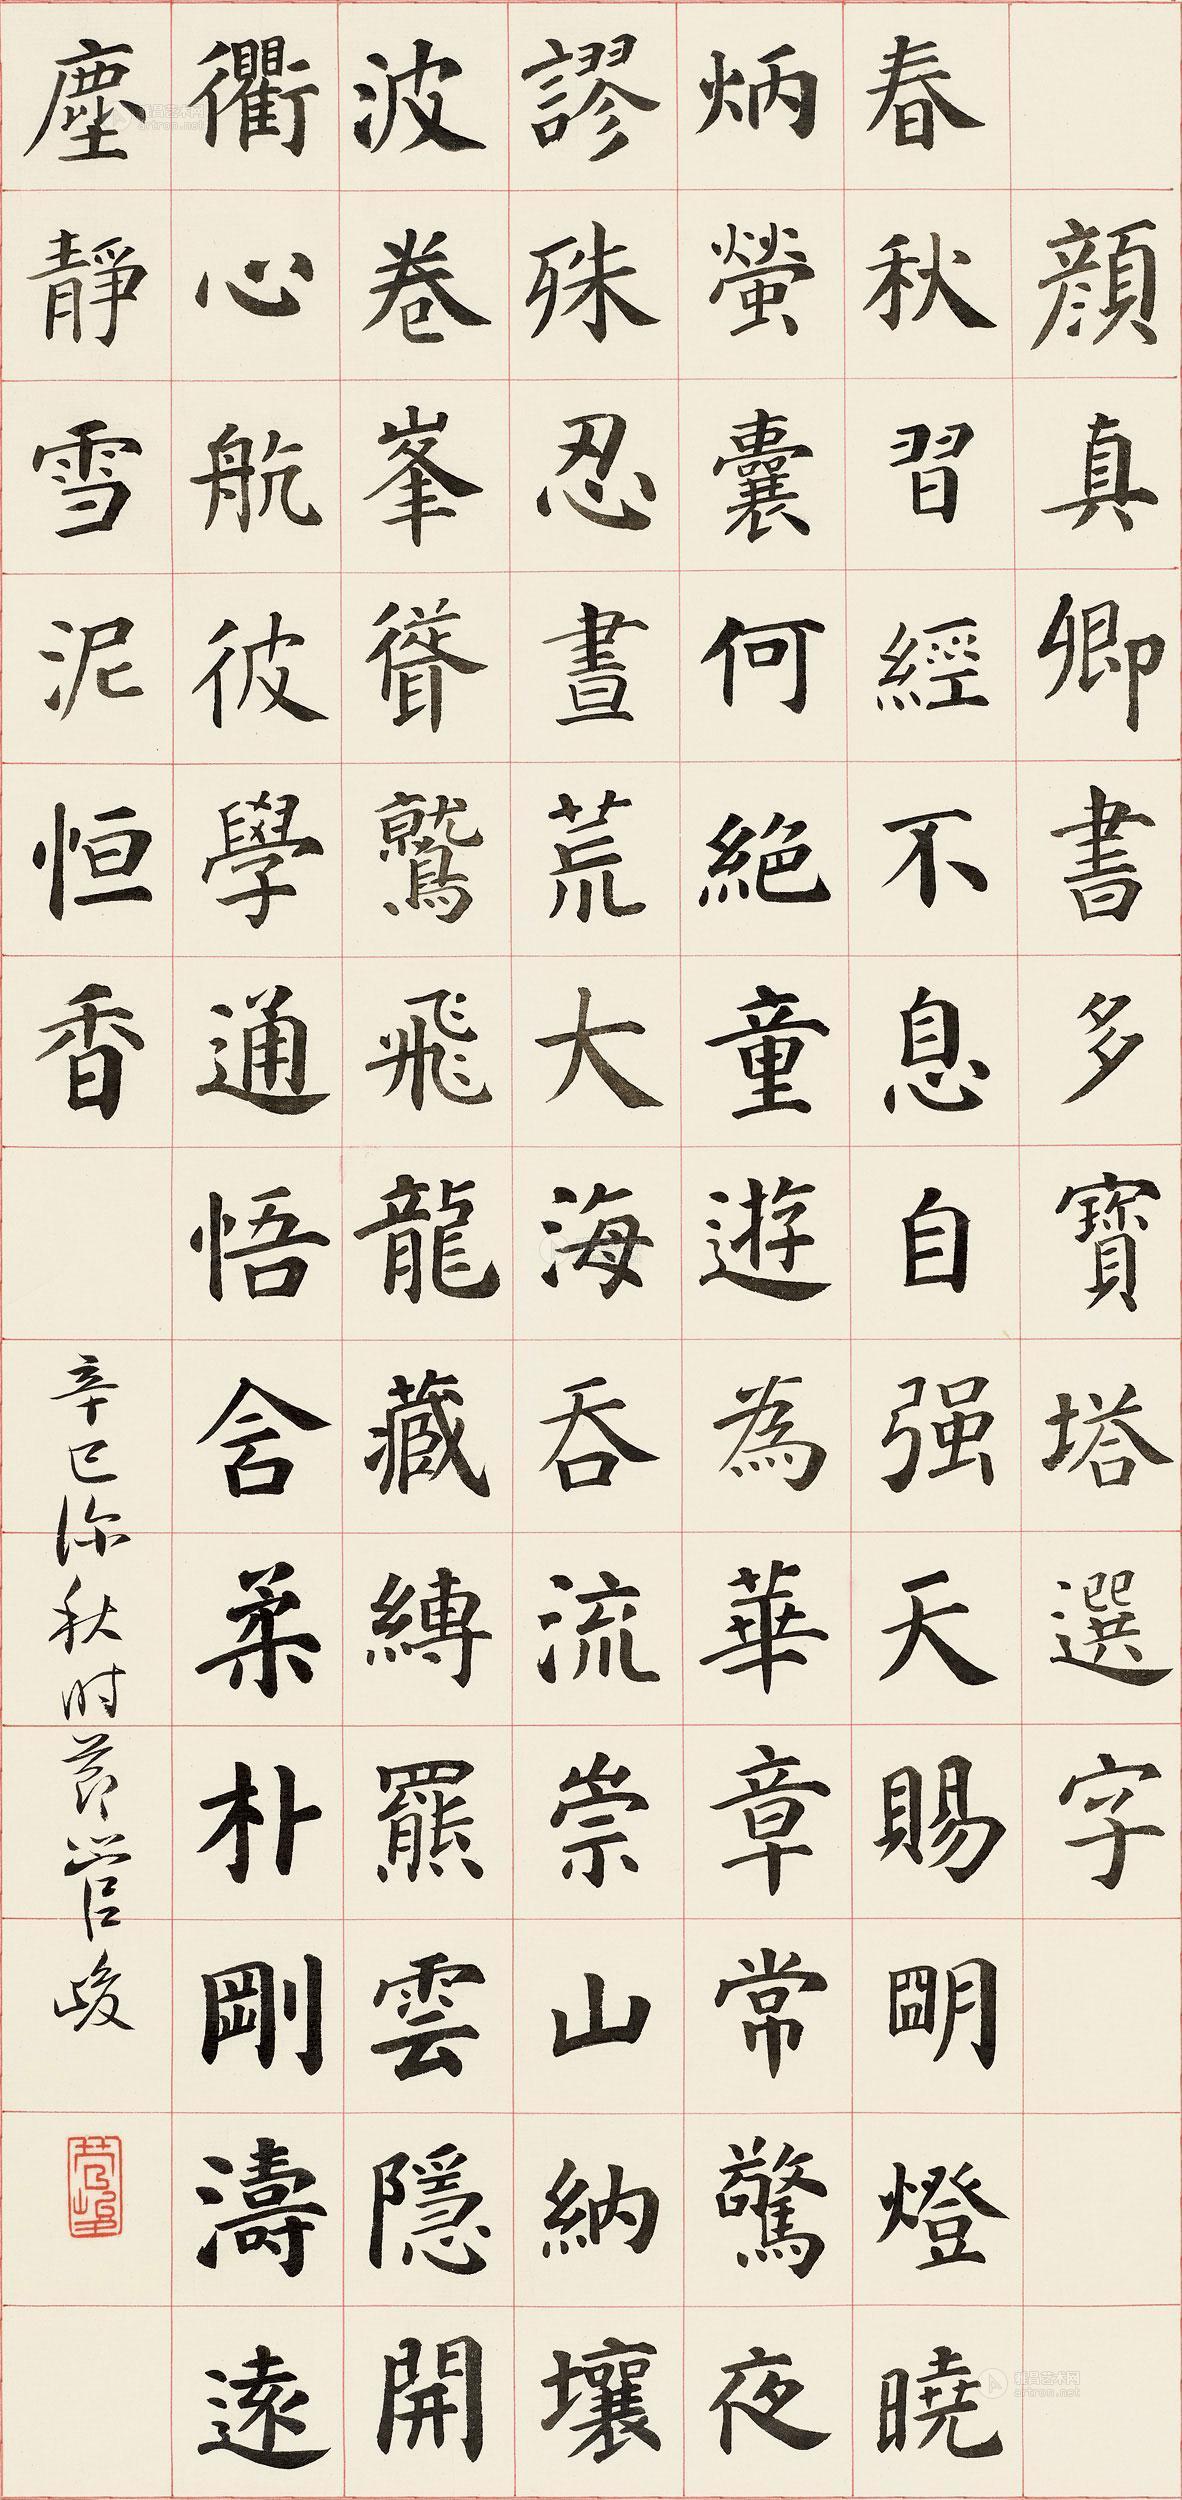 顏真卿書多寶塔選字
春秋習經不息自强天賜朙燈曉
炳螢囊何絕童遊為華章常驚夜
謬殊忍晝荒大海吞流崇山納壤
波卷峯聳鷲飛龍藏縛羆雲隱開
衢心航彼學通悟含柔朴剛濤遠
塵靜雪泥恒香
辛巳深秋时节管峻
雅昌艺术网
artron.net